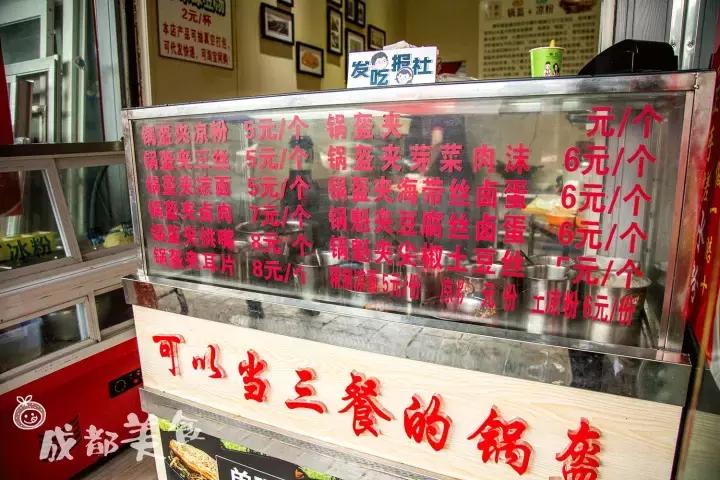 2元/杯
本店产品可抽真空打包,
可代发快递,可淘宝网购
锅盔&凉粉
发吃报社
锅盔夹凉粉 5元/个
锅盔夹三丝 5元/个
锅盔夹凉面 5元/个
锅盔夹卤肉 7元/个
锅盔夹拱嘴 8元/个
锅盔夹耳片 8元/个
锅盔夹 元/个
锅盔夹芽菜肉沫 6元/个
锅盔夹海带丝卤蛋 6元/个
锅魁夹豆腐丝卤蛋 6元/个
锅魁夹尖椒土豆丝 5元/个
5元/份
凉粉 元 份
土凉粉 6元/份
冰粉
可以当三餐的锅盔
成都美食